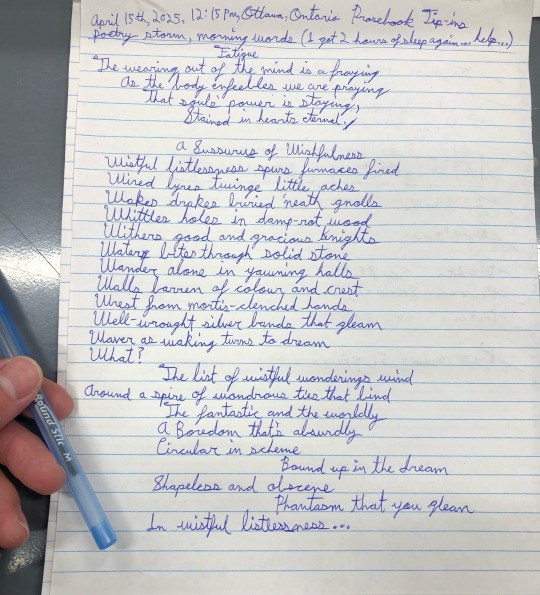 April 15th, 2025, 12:15pm, Ottawa, Ontario Prosebook Tip-ins
poetry storm, morning words (I got 2 hours of sleep again... help...)
Fatigue
The wearing out of the mind is a fraying
As the body enfeebles we are praying
That souls' power is staying,
Stained in hearts eternal./
A Sussurus of Wishfulness
Wistful listlessness spurs furnaces fired
Wired lyres twinge little aches
Wakes drakes buried 'neath gnolls
Whittles holes in damp-rot wood
Withers good and gracious knights
Water bites through solid stone
Wander alone in yawning halls
Walls barren of colour and crest
Wrest from mortis-clenched hands
Well-wrought silver bands that gleam
Waver as waking turns to dream
What?
The list of wistful wonderings wind
Around a spire of wondrous ties that bind
The fantastic and the worldly
A Boredom that's absurdly
Circular in scheme
Bound up in the dream
Shapeless and obscene
Phantasm that you glean
In wistful listlessness...
Round Stic M